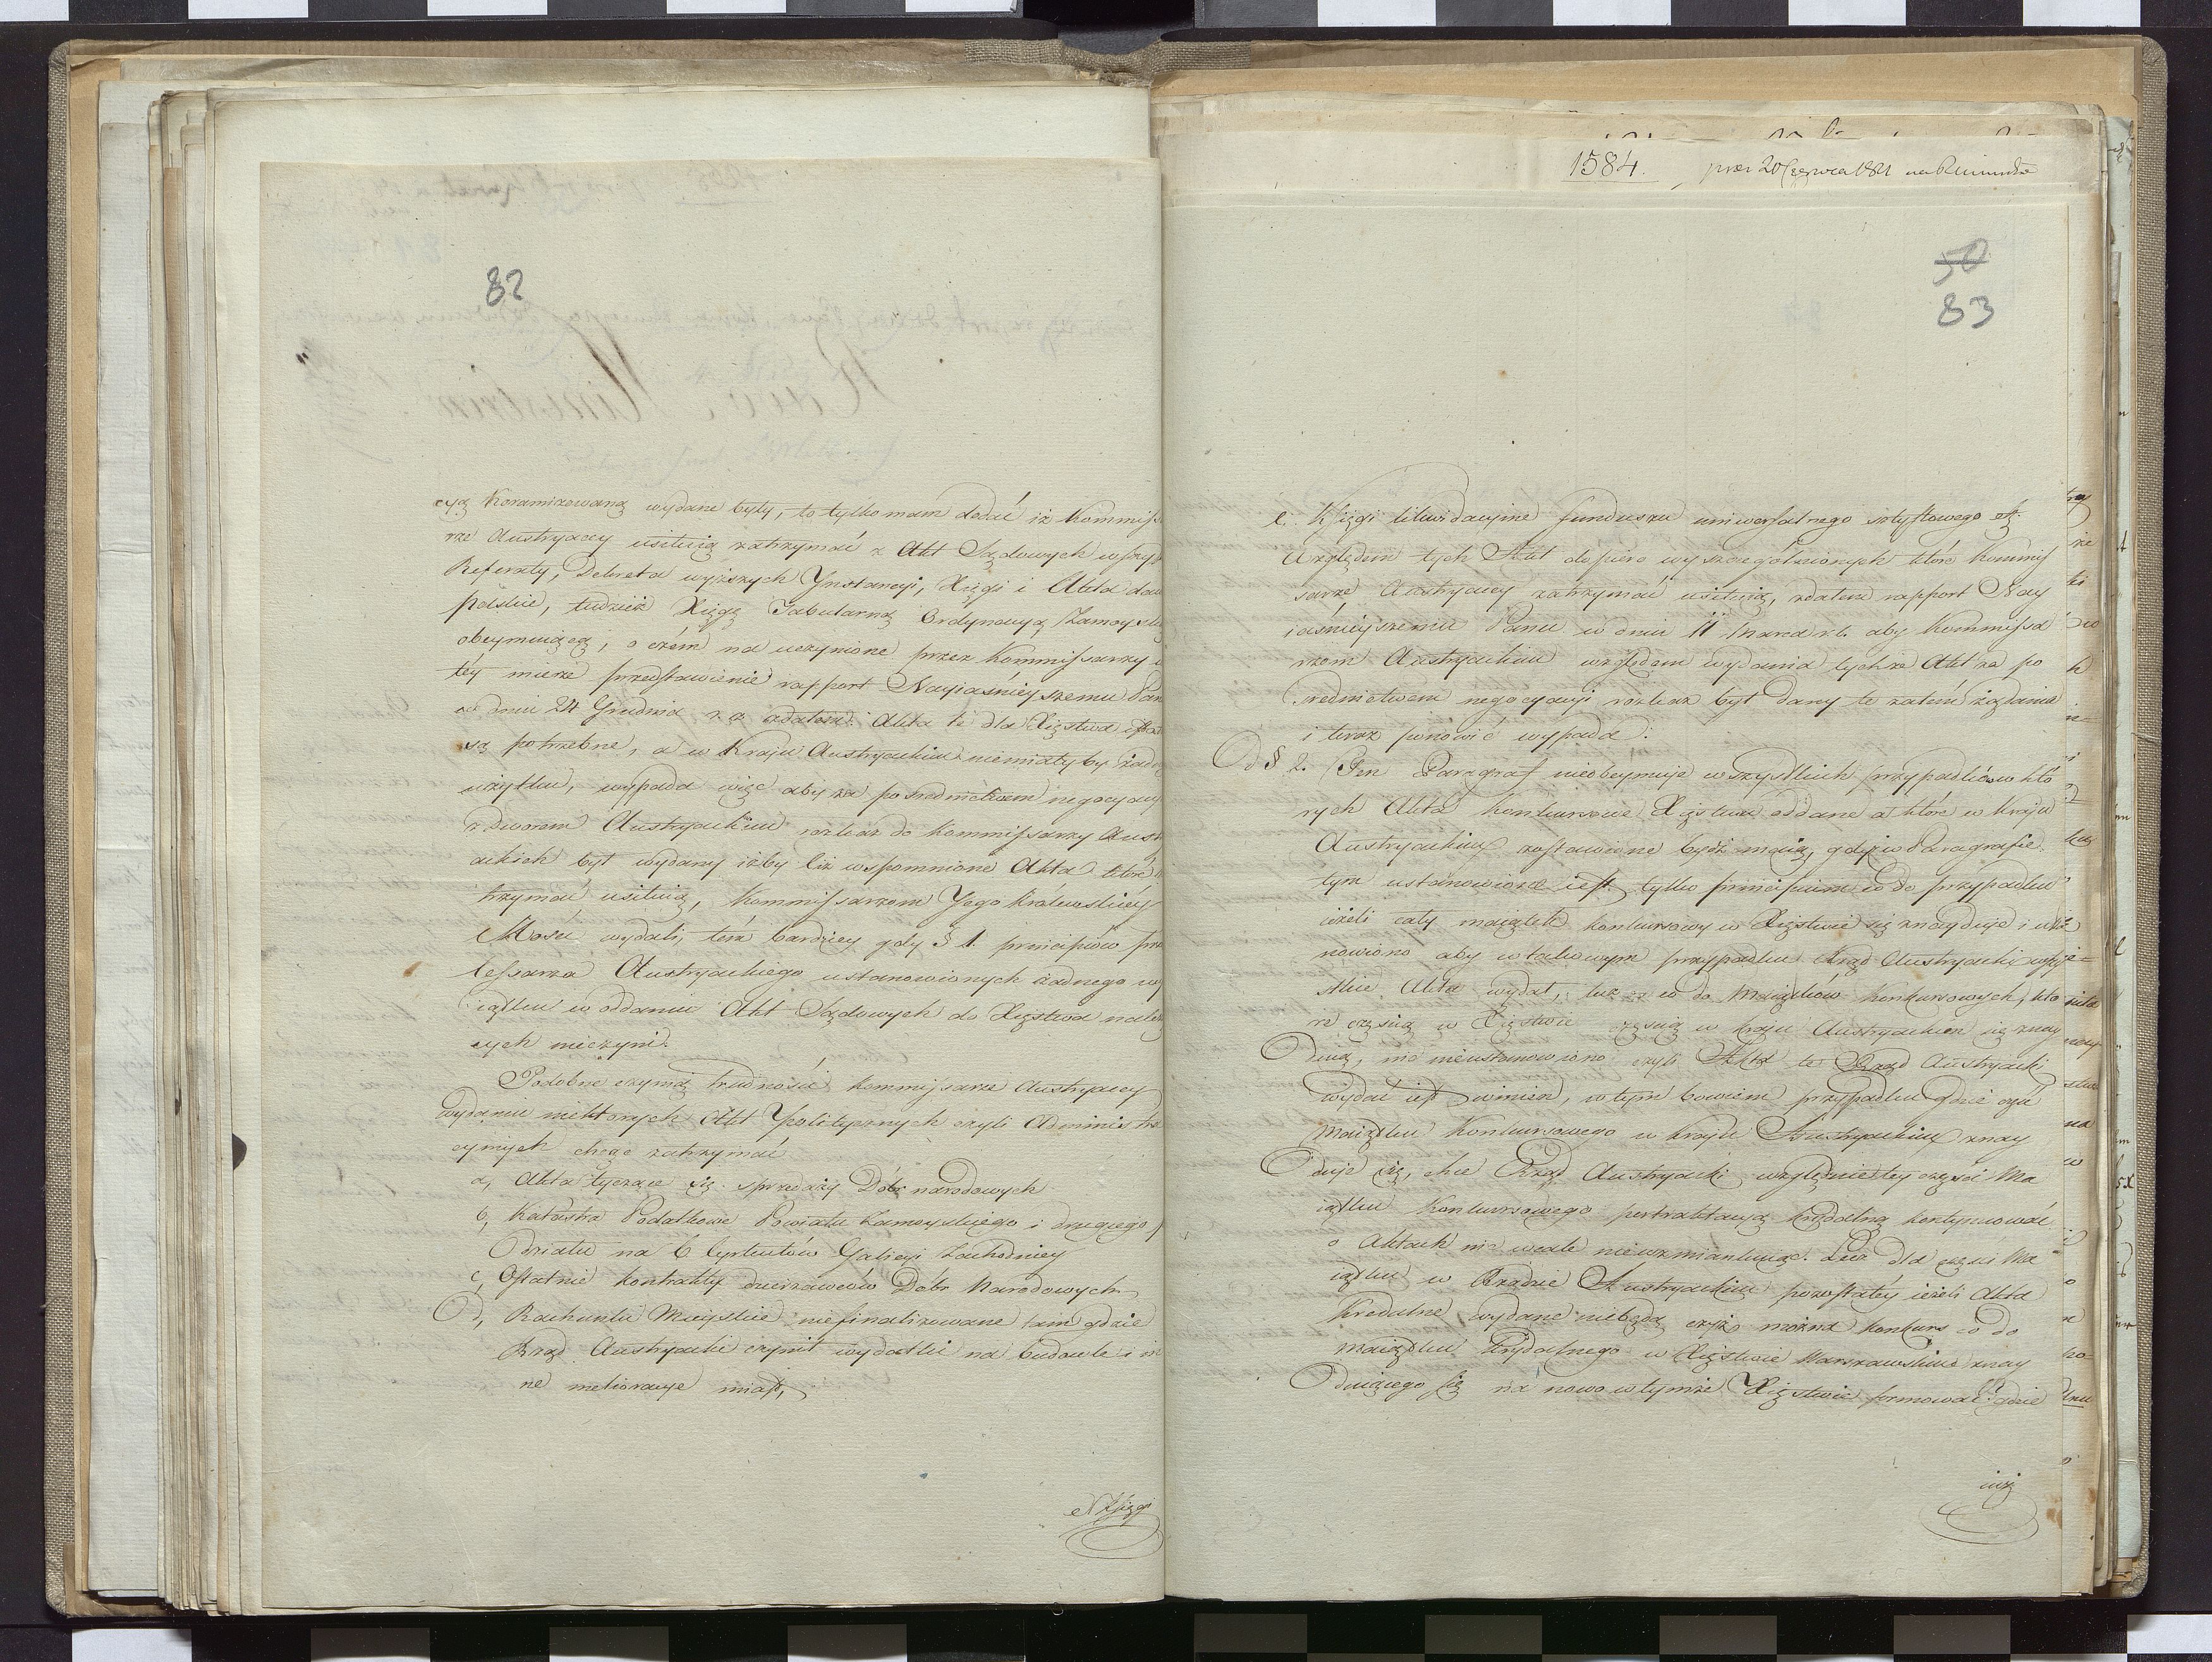 82
cyą Koramizowaną wydane były, to tylko mam dodać iż Kommiss
rze Austryaccy usiłuią zatrzymać z Akt Sądowych wszys
Referaty, Dekreta wyższych Ynstancyi, Xięgi i Akta daw
polskie, tudzież Xięgę Tabularną Ordynacyą Zamoysk
obeymuiącą, o czém na uczynione przez Kommissarzy w
téy mierze przedstawienie rapport Nayiaśnieyszemu Pan
w dniu 24 Grudnia z. r. zdałem. Akta te dla Xięstwa
są potrzebne, a w Kraju Austryackim niemiałyby żad
użytku, wypada więc aby za pośrednictwem negocyacy
z dworem Austryackim rozkaz do Kommissarzy Aust
ackich był wydany iżby też wspomnione Akta które
trzymać usiłuią, Kommissarzom Jego Królewskiéy
Mości wydali, tém bardziey gdy § 1. principiów prze
Cessarza Austryackiego ustanowionych żadnego wy
iątku w oddaniu Akt Sądowych do Xięstwa należ
cych nieczyni.
Podobne czynią trudności Kommissarze Austryaccy
wydaniu niektorych Akt politycznych czyli Administra
cyinych chcąc zatrzymać
a, Akta tyczące się sprzedaży Dóbr narodowych
b, Katastra Podatkowe Powiatu Zamoyskiego i drugiego p
działu na 6 Cyrkułów Galicyi Zachodniey
c, Ostatnie kontrakty dzierżawców Dóbr Narodowych
d, Rachunki Mieyskie niefinalizowane tam gdzie
Rząd Austryacki czynił wydatki na budowle i in
ne melioracye miast,
Xięgi
1584. prez 20 Czerwca 1811
50
83
e. Xsięgi likwidacyine funduszu uniwersalnego sztyftowego
Względem tych Akt dopiero wyszczególnionych które Kommis
sarze Austryaccy zatrzymać usiłuią, zdałem rapport Nay
iaśnieyszemu Panu w dniu 11 Marca r. b. aby Kommissa
rzom Austryackim względem wydania tychże Akt za po
średnictwem negocyacyi rozkaz był dany te zatém żądania
i teraz ponowić wypada.
Od § 2. Ten Paragraf nieobeymuje wszystkich przypadków któ
rych Akta konkursowe Xięstwu oddane a które w kraju
Austryackim zostawione bydź maią, gdyż w Paragrafie
tym ustanowione iest tylko principium co do przypadku
ieżeli cały maiątek konkursowy w Xięstwie się znayduje i usta
nowiono aby w takowym przypadku Rząd Austryacki wszy
stkie Akta wydał, lecz co do Maiątków konkursowych, któ
re częścią w Xięstwie częścią w kraju Austryackim się znay
duią, nic nieustanowiono czyli Akta te Rząd Austryacki
wydać iest winien, w tym bowiem przypadku gdzie część
Maiątku Konkursowego w kraju Austryackim znay
duje się, chce Rząd Austryacki względnie tey części Ma
iątku Konkursowego pertraktacyą krydalną kontynuować
o Aktach nic wcale niewzmiankuiąc. Lecz dla części Ma
iątku w Rządzie Austryackim pozostałéy ieżeli Akta
Kredalne wydane niebędą czyż można konkurs co do
maiątku Krydalnego w Xięstwie Warszawskim znay
duiącego się na nowo w tymże Xięstwie formować? gdzie
iuż